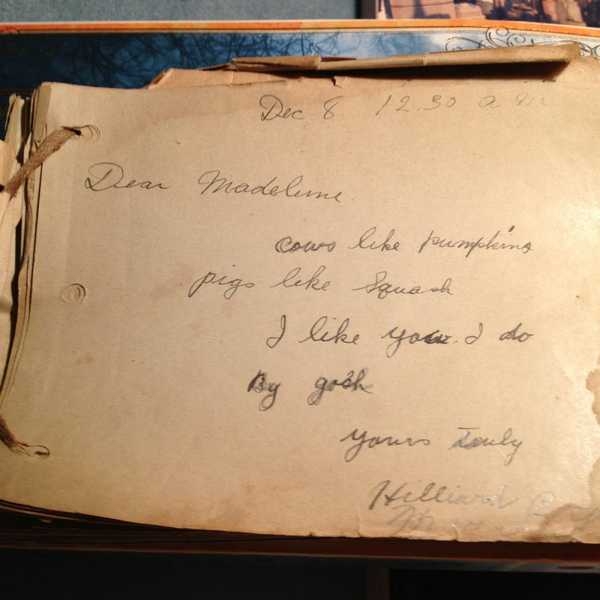 Dec 8 12.30 a.m
Dear Madeline
cows like pumpkins
pigs like Squash
I like you. I do
By gosh
yours truly
Hilliard